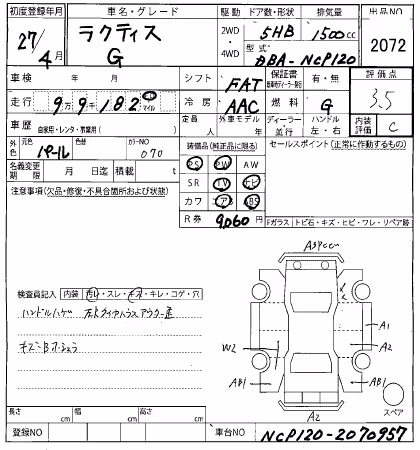 初度登録年月 車名・グレード 駆動 ドア数・形状 排気量 出品NO
27/4月 ラクティス G 2WD・4WD 5HB 1500cc 2072
型式 DBA-NCP120
車検 年 月 シフト FAT 保証書 有・無 評価点
走行 9万9千182 マイル 冷房 AAC 燃料 G 3.5
車歴 自家用・レンタ・事業用( ) 定員 人 外車モデル 年 ディーラー・並行 ハンドル 左・右 内装評価 C
外色 元色 パール 色替 カラーNO 070 装備品(純正品に限る) セールスポイント(正常に作動するもの)
名義変更期限 月 日迄 積載 t PS PW AW
注意事項(欠品・修復・不具合箇所および状態) SR TV ナビ
カワ エアB ABS
R券 9060円 Fガラス トビ石・キズ・ヒビ・ワレ・リペア跡
検査員記入 内装 汚レ・スレ・キズ・キレ・コゲ・穴
ハンドルハゲ
キズ
W2 A1
A2
AB1 AB1
A2 スペア
長さ cm 幅 cm 高さ cm
登録NO 車台NO NCP120-2070957